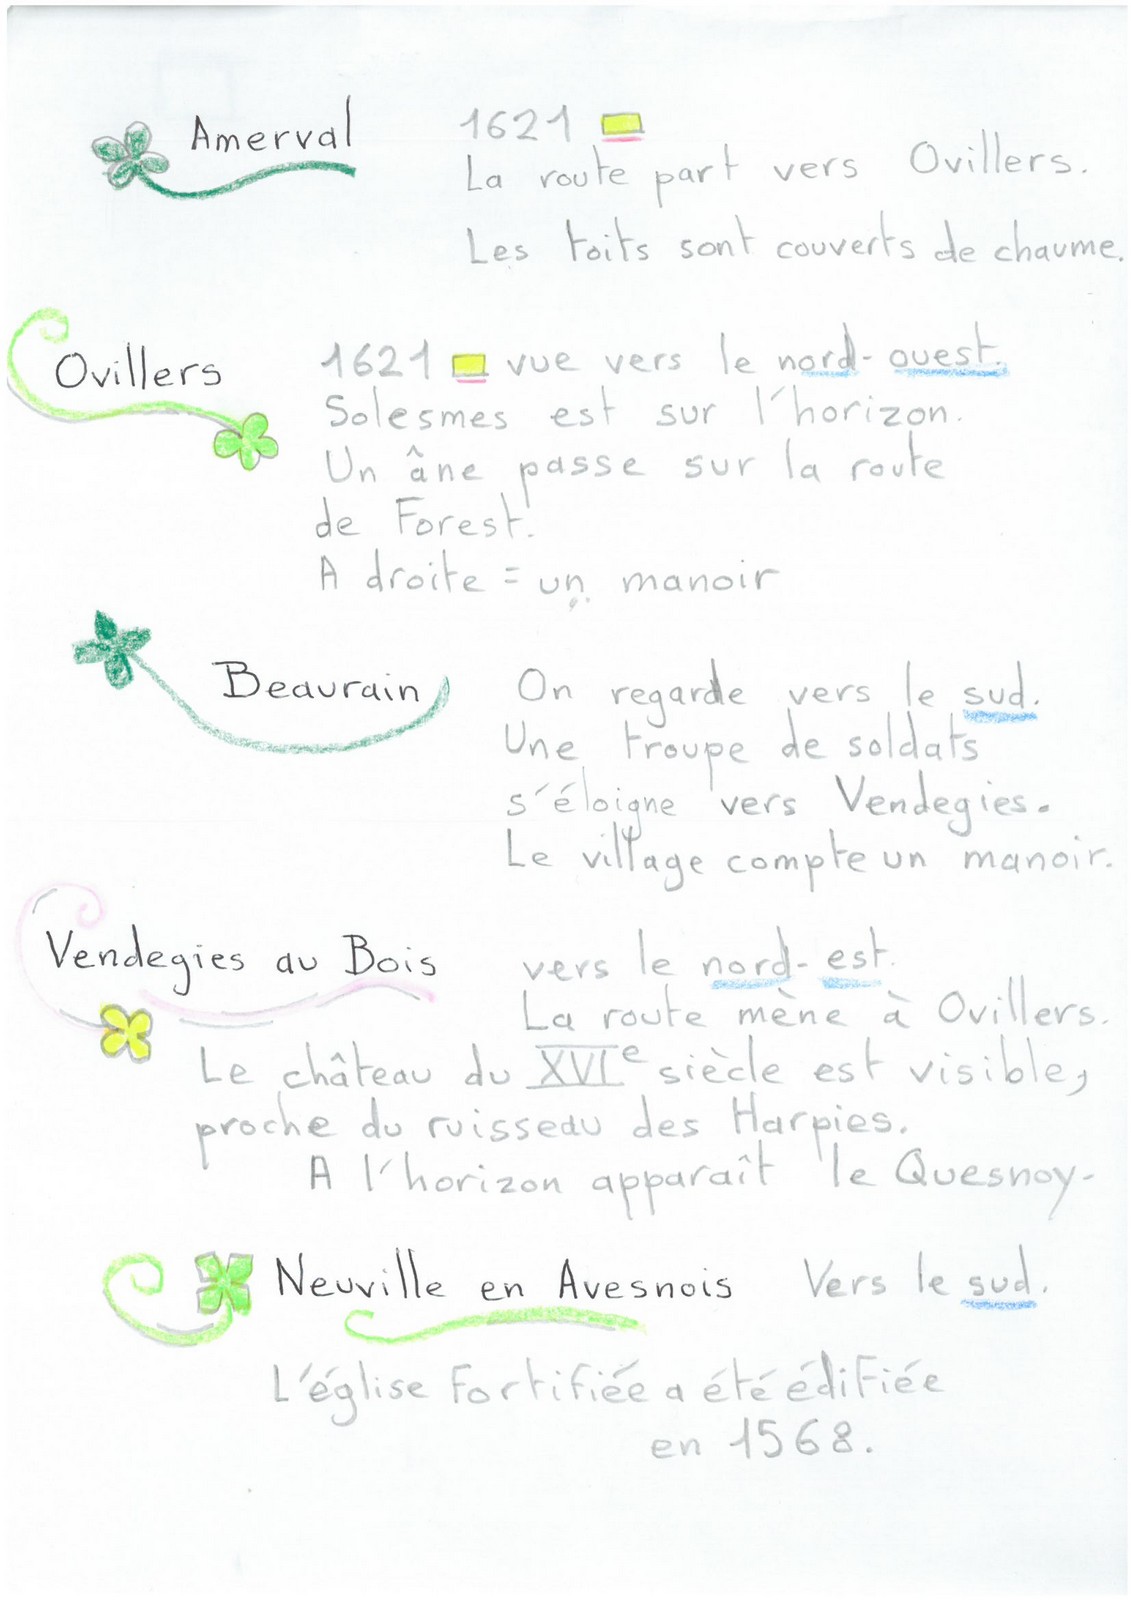 Amerval 1621
La route part vers Ovillers.
Les toits sont couverts de chaume.
Ovillers 1621 vue vers le nord-ouest.
Solesmes est sur l'horizon.
Un âne passe sur la route
de Forest.
A droite = un manoir
Beaurain On regarde vers le sud.
Une troupe de soldats
s'éloigne vers Vendegies.
Le village compte un manoir.
Vendegies au Bois vers le nord-est.
La route mène à Ovillers.
Le château du XVIe siècle est visible,
proche du ruisseau des Harpies.
A l'horizon apparaît le Quesnoy-
Neuville en Avesnois Vers le sud.
L'église fortifiée a été édifiée
en 1568.